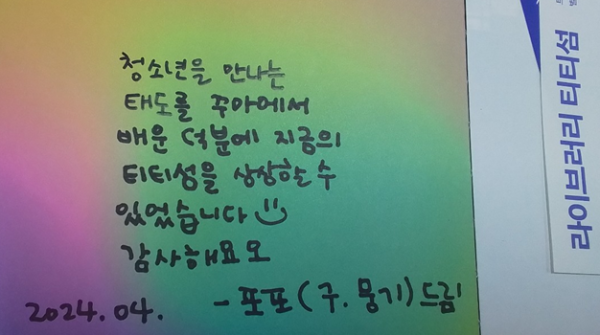 청소년을 만나는
태도를 꾸마에서
배운 덕분에 지금의
티티섬을 상상할 수
있었습니다
감사해요모
2024.04. - 포포(구.뭉기)드림!
라이브러리 티티섬